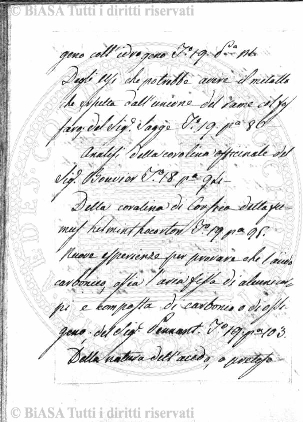 © BiASA Tutti i diritti riservati
geno coll'idrogeno T.º 19. p.ª
Degli usi che potrebbe avere il metallo
che risulta dall'unione del rame col fos
foro; del Sig.r Sage T.º 19. p.ª 86
Analisi della coralina officinale del
Sig.r Bouvier T.º 18 p.ª
Della coralina di Corsica della fu
T.º 19. p.ª 95.
Nuove esperienze per provare che l'acido
carbonico, ossia l'aria fissa di alcuni cor
pi e composta di carbonio e di ossi
geno del Sig.r Tennant. T.º 19. p.ª 103.
Della natura dell'acido, o pretese
© BiASA Tutti i diritti riservati